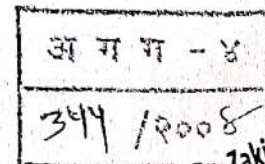 अ ग ग - ४
३५५ /२००४
Zaki